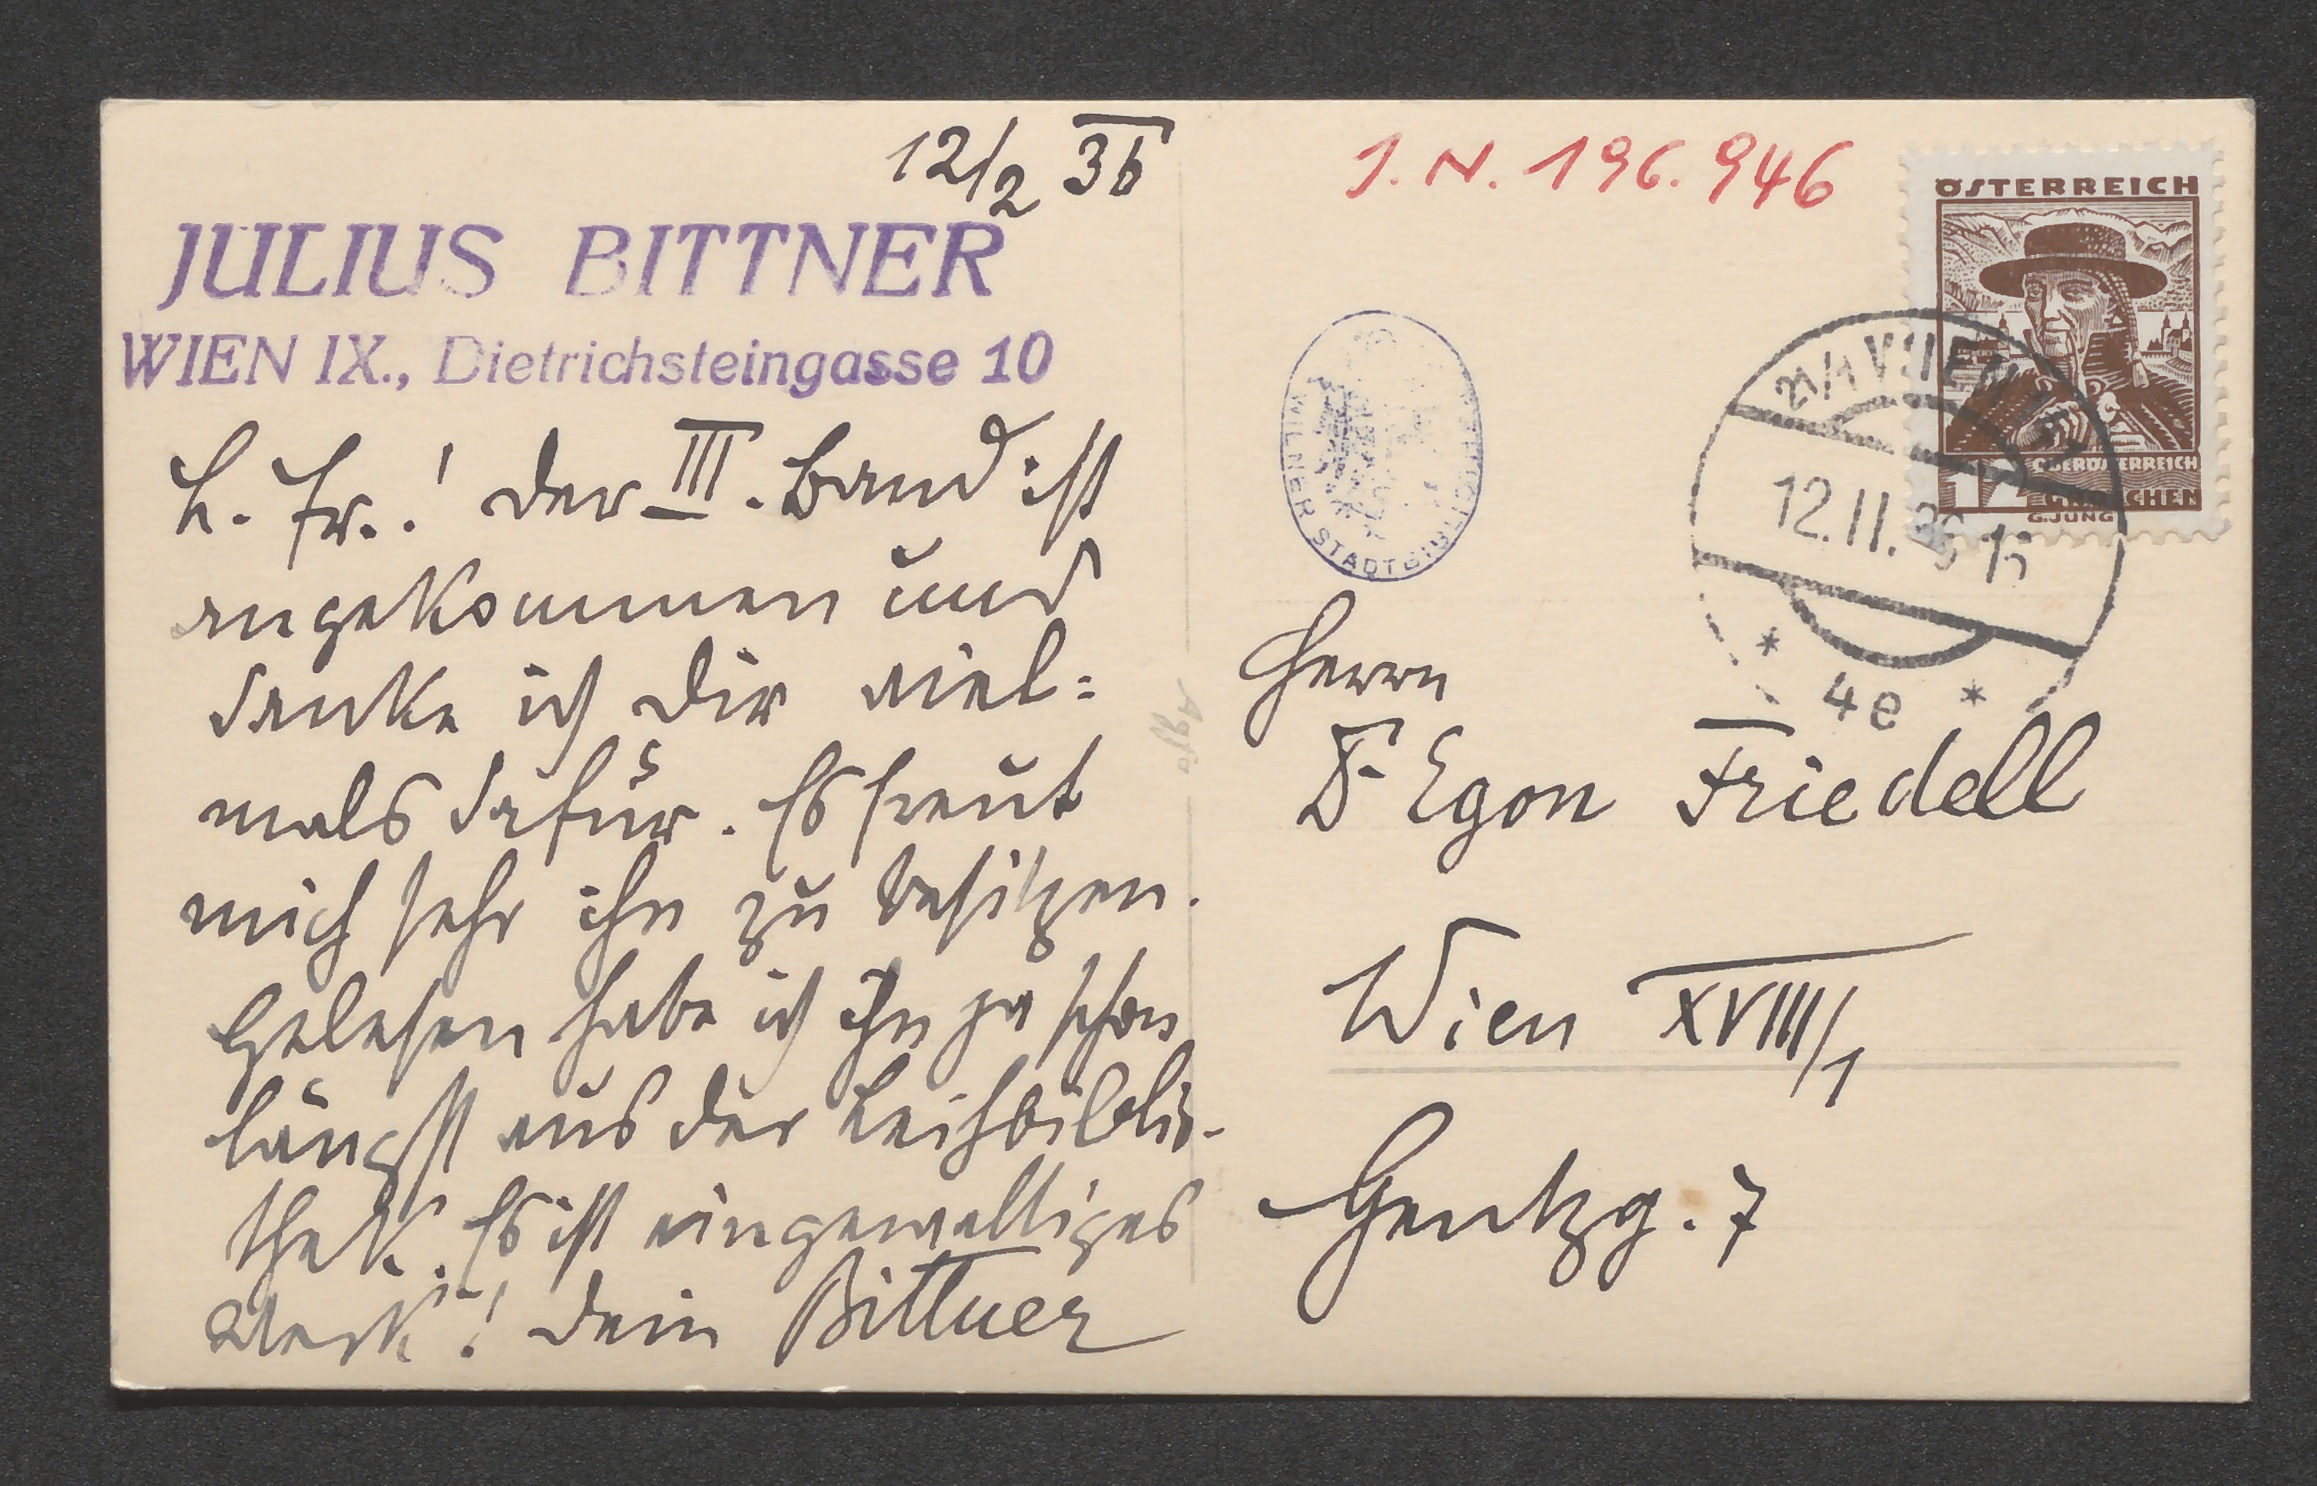 12/2 36
JULIUS BITTNER
WIEN IX., Dietrichsteingasse 10
L. Fr.! Der III. Band ist
angekommen und
danke ich Dir viel=
mals dafür. Es freut
mich sehr ihn zu besitzen.
Gelesen habe ich ihn ja schon
längst aus der Leihbiblio-
thek. Es ist ein gewaltiges
Werk! Dein Bittner
Agfa
J. N. 196.946
ÖSTERREICH
OBERÖSTERREICH
12 GROSCHEN
G. JUNG
WIENER STADTBIBLIOTHEK
WIEN
12.II.36 15
* 4e *
Herrn
Dr. Egon Friedell
Wien XVIII/1
Gentzg. 7